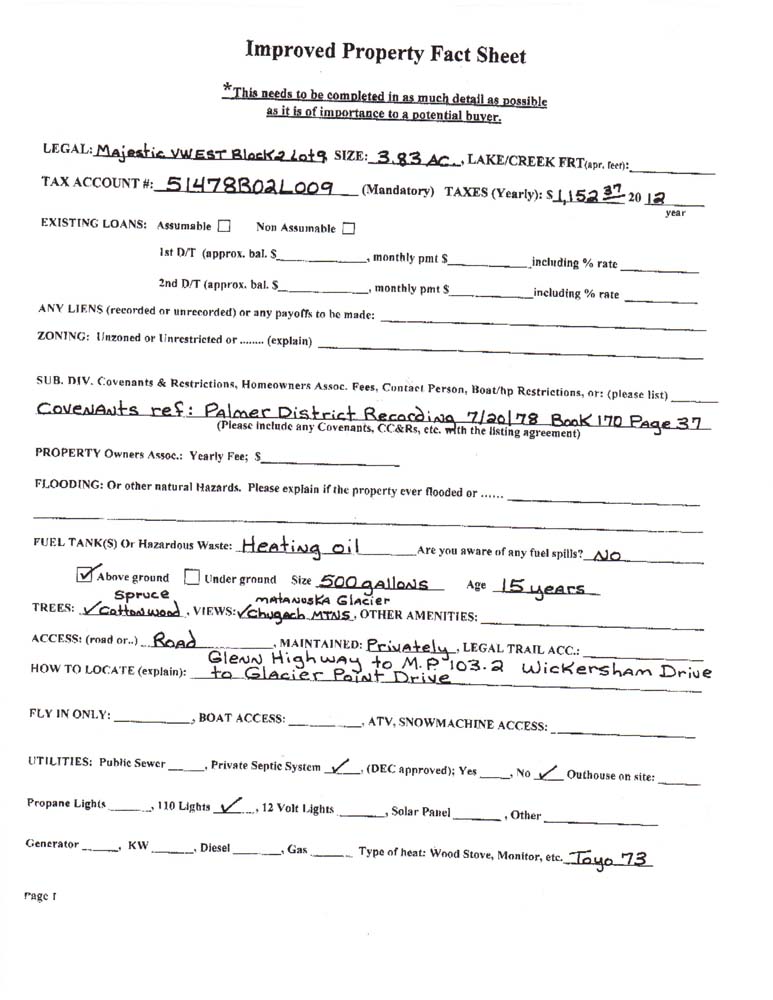 Improved Property Fact Sheet
*This needs to be completed in as much detail as possible
as it is of importance to a potential buyer.
LEGAL: Majestic VWEST Block2 Lot9 SIZE: 3.83 AC., LAKE/CREEK FRT(apr. feet):
TAX ACCOUNT #: 51478B02L009 (Mandatory) TAXES (Yearly): $1,152 37 2012
year
EXISTING LOANS: Assumable ☐ Non Assumable ☐
1st D/T (approx. bal. $____, monthly pmt $____including % rate ____
2nd D/T (approx. bal. $____, monthly pmt $____including % rate ____
ANY LIENS (recorded or unrecorded) or any payoffs to be made: ____
ZONING: Unzoned or Unrestricted or ........ (explain) ____
SUB. DIV. Covenants & Restrictions, Homeowners Assoc. Fees, Contact Person, Boat/hp Restrictions, or: (please list) ____
Covenants ref: Palmer District Recording 7/20/78 Book 170 Page 37
(Please include any Covenants, CC&Rs, etc. with the listing agreement)
PROPERTY Owners Assoc.: Yearly Fee; $____
FLOODING: Or other natural Hazards. Please explain if the property ever flooded or ...... ____
FUEL TANK(S) Or Hazardous Waste: Heating oil Are you aware of any fuel spills? NO
☑ Above ground ☐ Under ground Size 500 gallons Age 15 years
Spruce Matanuska Glacier
TREES: ✓Cottonwood, VIEWS: ✓Chugach MTNS, OTHER AMENITIES: ____
ACCESS: (road or..) Road, MAINTAINED: Privately, LEGAL TRAIL ACC.: ____
Glenn Highway to M.P. 103.2 Wickersham Drive
HOW TO LOCATE (explain): to Glacier Point Drive
FLY IN ONLY: ____, BOAT ACCESS: ____, ATV, SNOWMACHINE ACCESS: ____
UTILITIES: Public Sewer ____, Private Septic System ✓, (DEC approved); Yes ____, No ✓ Outhouse on site: ____
Propane Lights ____, 110 Lights ✓, 12 Volt Lights ____, Solar Panel ____, Other ____
Generator ____, KW ____, Diesel ____, Gas ____ Type of heat: Wood Stove, Monitor, etc. Toyo 73
Page 1